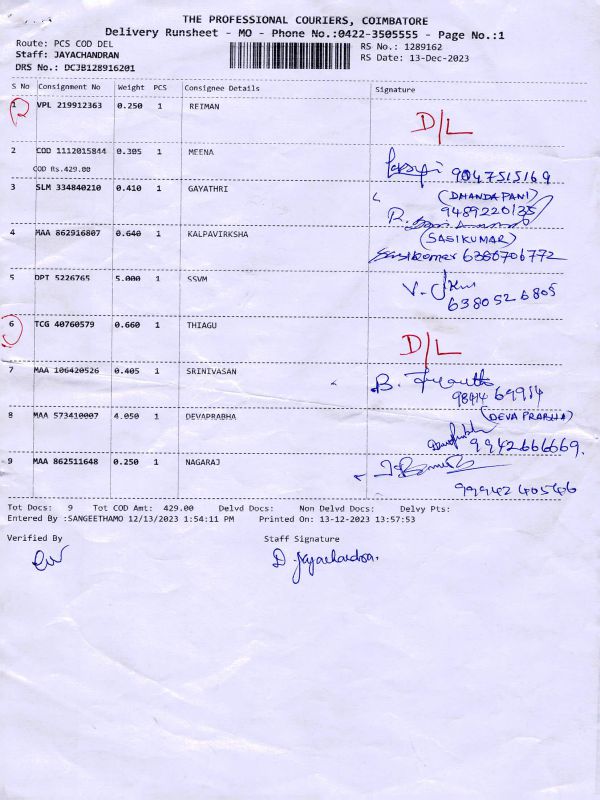 THE PROFESSIONAL COURIERS, COIMBATORE
Delivery Runsheet - MO - Phone No.:0422-3505555 - Page No.:1
Route: PCS COD DEL
Staff: JAYACHANDRAN
DRS No.: DCJB128916201
RS No.: 1289162
RS Date: 13-Dec-2023
S No Consignment No Weight PCS Consignee Details Signature
1 VPL 219912363 0.250 1 REIMAN D/L
2 COD 1112015844 0.305 1 MEENA
COD Rs.429.00
9047515169
3 SLM 334840210 0.410 1 GAYATHRI (DHANDAPANI)
9489220135
4 MAA 862916807 0.640 1 KALPAVIRKSHA (SASIKUMAR)
Sasikumar 6380706772
5 DPT 5226765 5.000 1 SSVM
6380526805
6 TCG 40760579 0.660 1 THIAGU D/L
7 MAA 106420526 0.405 1 SRINIVASAN B.
8 MAA 573410007 4.050 1 DEVAPRABHA (DEVA PRABHA)
9942666669.
9 MAA 862511648 0.250 1 NAGARAJ
Tot Docs: 9 Tot COD Amt: 429.00 Delvd Docs: Non Delvd Docs: Delvy Pts:
Entered By :SANGEETHAMO 12/13/2023 1:54:11 PM Printed On: 13-12-2023 13:57:53
Verified By Staff Signature
D. Jayachandran.